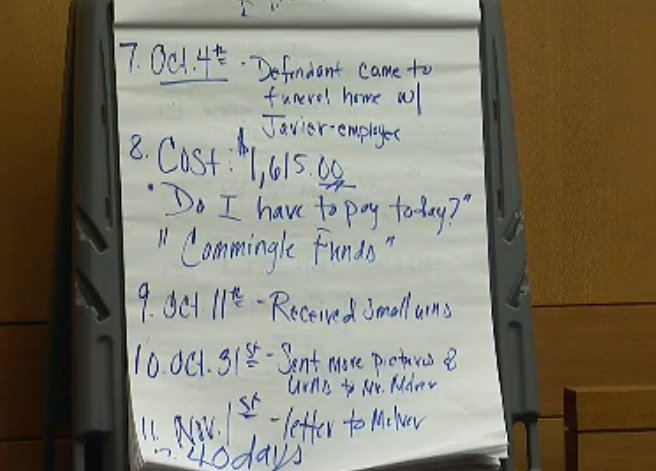 7. Oct. 4th - Defendant came to
funeral home w/
Javier-employee
8. Cost: $1,615.00
"Do I have to pay today?"
"Commingle Funds"
9. Oct 11th - Received small urns
10. Oct. 31st - Sent more pictures &
urns to Mr.
11. Nov. 1st - letter to
40 days